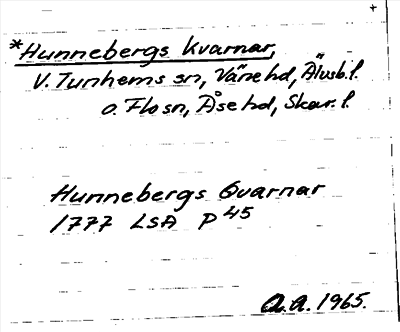 *Hunnebergs Kvarnar,
V. Tunhems sn, Väne hd, Älvsb. l.
o. Flo sn, Åse hd, Skar. l.
Hunnebergs Qvarnar
1777 LSA P 45
A.A. 1965.